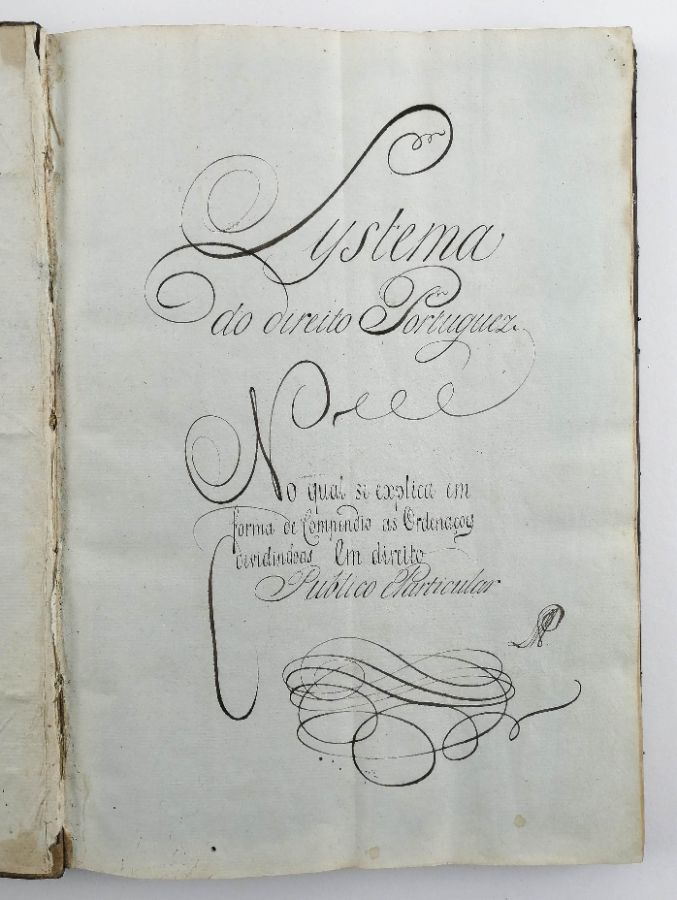 Systema
do direito Portuguez.
No qual se explica em
forma de Compendio as Ordenaçoẽs
dividindoas Em direito
Publico e Particular